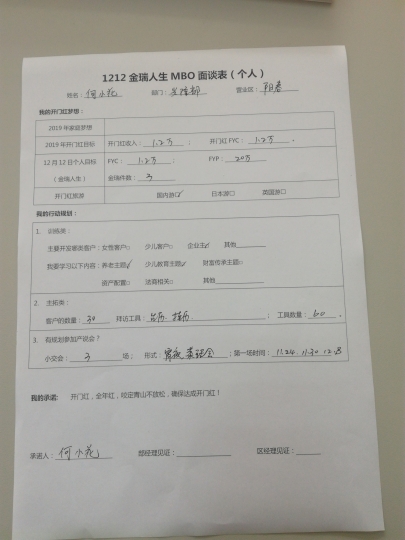 1212 金瑞人生 MBO 面谈表（个人）
姓名：何小花 部门： 营业区：阳春
我的开门红梦想：
2019 年家庭梦想
2019 年开门红目标 开门红收入：1.2万； 开门红 FYC：1.2万。
12 月 12 日个人目标 FYC：1.2万； FYP：20万
（金瑞人生） 金瑞件数：3
开门红旅游 国内游☑ 日本游□ 美国游□
我的行动规划：
1. 训练类：
主要开发哪类客户：女性客户□ 少儿客户□ 企业主☑ 其他
我要学习以下内容：养老主题☑ 少儿教育主题☑ 财富传承主题□
资产配置□ 法商相关□ 其他
2. 主拓类：
客户的数量：30 拜访工具：台历 挂历； 工具数量：60。
3. 有规划参加产说会？
小交会：3 场； 形式：；第一场时间：11.24 11.30 12.8
我的承诺： 开门红，全年红，咬定青山不放松，确保达成开门红！
承诺人：何小花 部经理见证： 区经理见证：